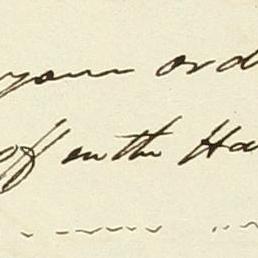 your ord
off on the Ha